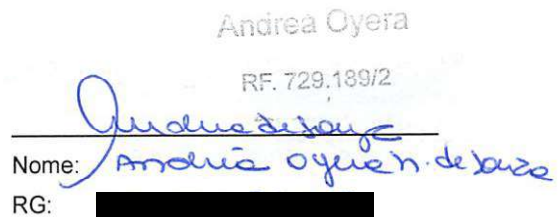 Andrea Oyera
RF. 729.189/2
Andréa de Souza
Nome: Andréa Oyera n. de Souza
RG: